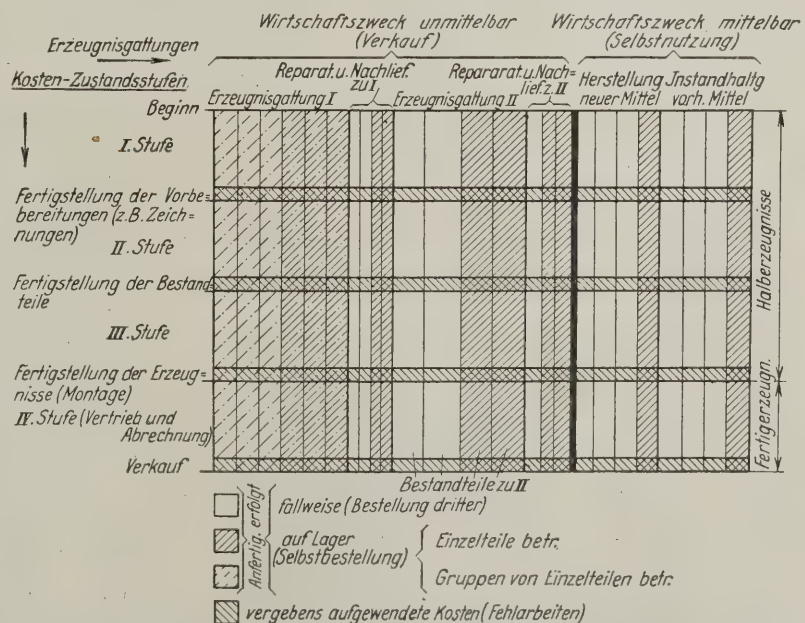 Wirtschaftszweck unmittelbar
(Verkauf)
Wirtschaftszweck mittelbar
(Selbstnutzung)
Erzeugnisgattungen
Kosten-Zustandsstufen
Erzeugnisgattung I
Reparat. u. Nachlief.
zu I
Erzeugnisgattung II
Repararat. u. Nach=
lief. z. II
Herstellung
neuer Mittel
Jnstandhaltg
vorh. Mittel
Beginn
I. Stufe
Fertigstellung der Vorbe=
bereitungen (z.B. Zeich=
nungen)
II. Stufe
Fertigstellung der Bestand=
teile
III. Stufe
Fertigstellung der Erzeug=
nisse (Montage)
IV. Stufe (Vertrieb und
Abrechnung)
Verkauf
Halberzeugnisse
Fertigerzeugn.
Bestandteile zu II
Anfertig. erfolgt
fallweise (Bestellung dritter)
auf Lager
(Selbstbestellung)
Einzelteile betr.
Gruppen von Einzelteilen betr.
vergebens aufgewendete Kosten (Fehlarbeiten)